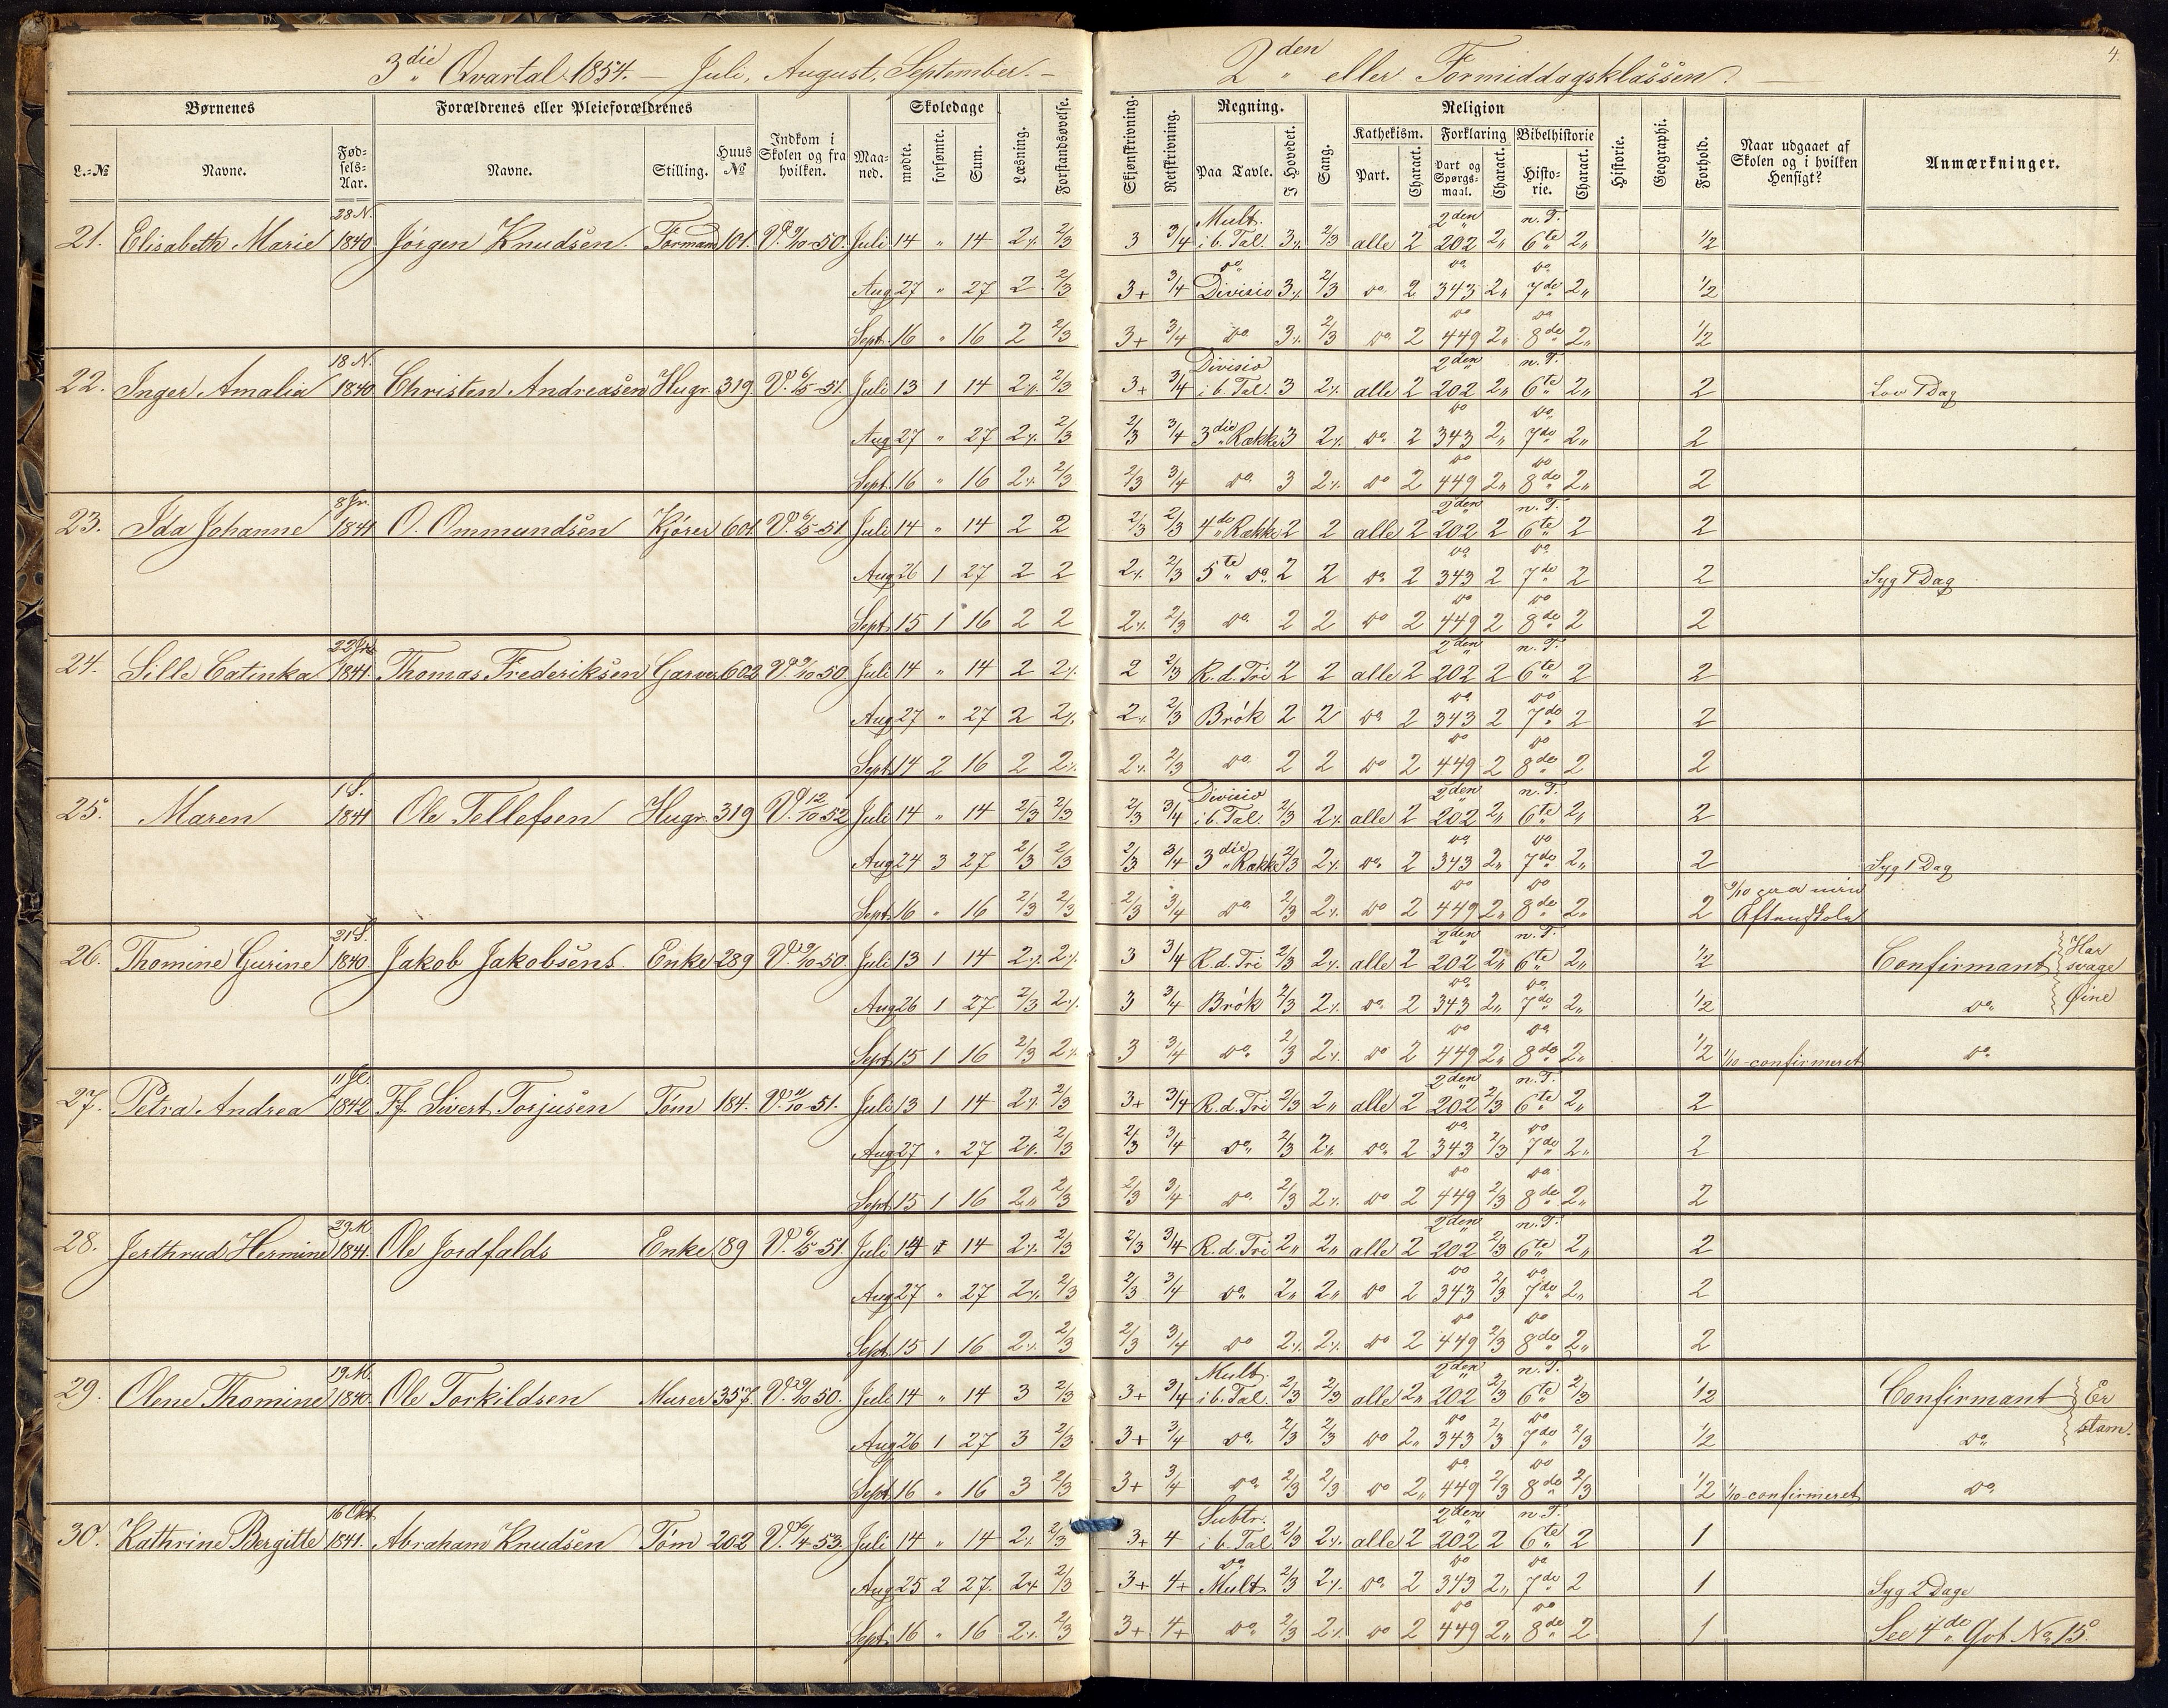 3die Qvartal 1854. — Juli, August, September. —
2den eller Formiddagsklassen. —
4.
Børnenes
Forældrenes eller Pleieforældrenes
Skoledage
L.-№ Navne. Fød-sels-Aar. Navne. Stilling. Huus № Indkom i Skolen og fra hvilken. Maa-ned. mødte. forsømte. Sum. Læsning. Forstandsøvelse.
Skjønskrivning. Retskrivning. Regning. Paa Tavle. I Hovedet. Sang. Religion Kathekism. Part. Charact. Forklaring Part og Spørgs-maal. Charact. Bibelhistorie Histo-rie. Charact. Historie. Geographi. Forhold. Naar udgaaet af Skolen og i hvilken Hensigt? Anmærkninger.
28 N.
21. Elisabeth Marie 1840 Jørgen Knudsen. Formand 101. V. 9/10-50. Juli 14 " 14 2% 2/3
Aug 27 " 27 2 2/3
Sept. 16 " 16 2 2/3
18 N.
22. Inger Amalia 1840 Christen Andreasen Hugr. 319. V. 6/5-51. Juli 13 1 14 2% 2/3
Aug 27 " 27 2% 2/3
Sept. 16 " 16 2% 2/3
8 Jr.
23. Ida Johanne 1841 O. Ommundsen Kjører 601. V. 6/5-51 Juli 14 " 14 2 2
Aug 26 1 27 2 2
Sept. 15 1 16 2 2
24. Sille Catinka 1841. Thomas Frederiksen Garver 602 V. 9/10 50 Juli 14 " 14 2 2%
Aug 27 " 27 2 2%
Sept. 14 2 16 2 2%
1 S.
25. Maren 1841 Ole Tellefsen Hugr. 319 V. 12/10 52 Juli 14 " 14 2/3 2/3
Aug 24 3 27 2/3 2/3
Sept. 16 " 16 2/3 2/3
21 S.
26. Thomine Gurine 1840 Jakob Jakobsens Enke 289 V. 9/10 50. Juli 13 1 14 2% 2%
Aug 26 1 27 2/3 2%
Sept 15 1 16 2/3 2%
11 Jl.
27. Petra Andrea 1842 Ff. Sivert Torjusen Tøm 184. V. 11/10-51. Juli 13 1 14 2% 2/3
Aug 27 " 27 2% 2/3
Sept 15 1 16 2" 2/3
29 M
28. Jerthrud Hermine 1841. Ole Jordfalds Enke 89 V. 6/5-51. Juli 14 14 2% 2/3
Aug 27 " 27 2% 2/3
Sept 15 1 16 2% 2/3
19 M.
29. Olene Thomine 1840. Ole Torkildsen Murer 357. V. 9/10 50. Juli 14 " 14 3 2/3
Aug 26 1 27 3 2/3
Sept 16 " 16 3 2/3
16 Okt
30. Kathrine Bergitte 1841. Abraham Knudsen Tøm 202 V. 6/4 53 Juli 14 " 14 2% 2/3
Aug 25 2 27. 2% 2/3
Sept. 16 " 16 2% 2/3
Mult. 2den n. T.
3 3/4 i b. Tal. 3% 2/3 alle 2 202 2" 6te 2" 1/2
do do do
3+ 3/4 Divisio 3% 2/3 do 2 343 2" 7de 2" 1/2
do do
3+ 3/4 do 3% 2/3 do 2 449 2" 8de 2" 1/2
Divisio 2den n. T.
3+ 3/4 i b. Tal. 3 2% alle 2 202 2" 6te 2" 2 Lov 1 Dag
do do
2/3 3/4 3die Række 3 2% do 2 343 2" 7de 2" 2
do do
2/3 3/4 do 3 2% do 2 449 2" 8de 2" 2
2den n. T.
2/3 2/3 4de Række 2 2 alle 2 202 2 6te 2 2
do do
2% 2/3 5te do 2 2 do 2 343 2 7de 2 2 Syg 1 Dag
do do
2% 2/3 do 2 2 do 2 449 2 8de 2 2
2den n. T.
2 2/3 R. d. Tri 2 2 alle 2 202 2 6te 2 2
do do
2% 2/3 Brök 2 2 do 2 343 2 7de 2 2
do do
2% 2/3 do 2 2 do 2 449 2 8de 2 2
Divisio 2den n. T.
2/3 3/4 i b. Tal. 2/3 2% alle 2 202 2" 6te 2" 2
do do
2/3 3/4 3die Række 2/3 2% do 2 343 2" 7de 2" 2 Syg 1 Dag
do do
2/3 3/4 do 2/3 2% do 2 449 2" 8de 2" 2 Aftenskole
2den n. T.
3 3/4 R. d. Tri 2/3 2% alle 2 202 2" 6te 2" 1/2 Confirmant Har svage
do do
3 3/4 Brök 2/3 2% do 2 343 2" 7de 2" 1/2 do Øine
do do
3 3/4 do 2/3 2% do 2 449 2" 8de 2" 1/2 1/10-confirmeret do
2den n. T.
3+ 3/4 R. d. Tri 2/3 2" alle 2 202 2/3 6te 2" 2
do do
2/3 3/4 do 2/3 2% do 2 343 2/3 7de 2" 2
do do
2/3 3/4 do 2/3 2% do 2 449 2/3 8de 2" 2
2den n. T.
2/3 3/4 R. d. Tri 2" 2" alle 2 202 2/3 6te 2" 2
do do
2/3 3/4 do 2" 2" do 2 343 2/3 7de 2" 2
do do
2/3 3/4 do 2% 2% do 2 449 2/3 8de 2" 2
Mult. 2den n. T.
3+ 3/4 i b. Tal. 2/3 2/3 alle 2" 202 2/3 6te 2/3 1/2 Confirmant Er
do do
3+ 3/4 do 2/3 2/3 do 2" 343 2/3 7de 2/3 1/2 do stam.
do do
3+ 3/4 do 2/3 2/3 do 2" 449 2/3 8de 2/3 1/2 1/10-confirmeret do
Subtr. 2den n. T.
3+ 4 i b. Tal 2/3 2% alle 2 202 2 6te 2 1
do do do
3+ 4+ Mult. 2/3 2% do 2 343 2" 7de 2 1 Syg 2 Dage
do do
3+ 4+ do 2/3 2% do 2 449 2" 8de 2 1 See 4de Qvt No 15